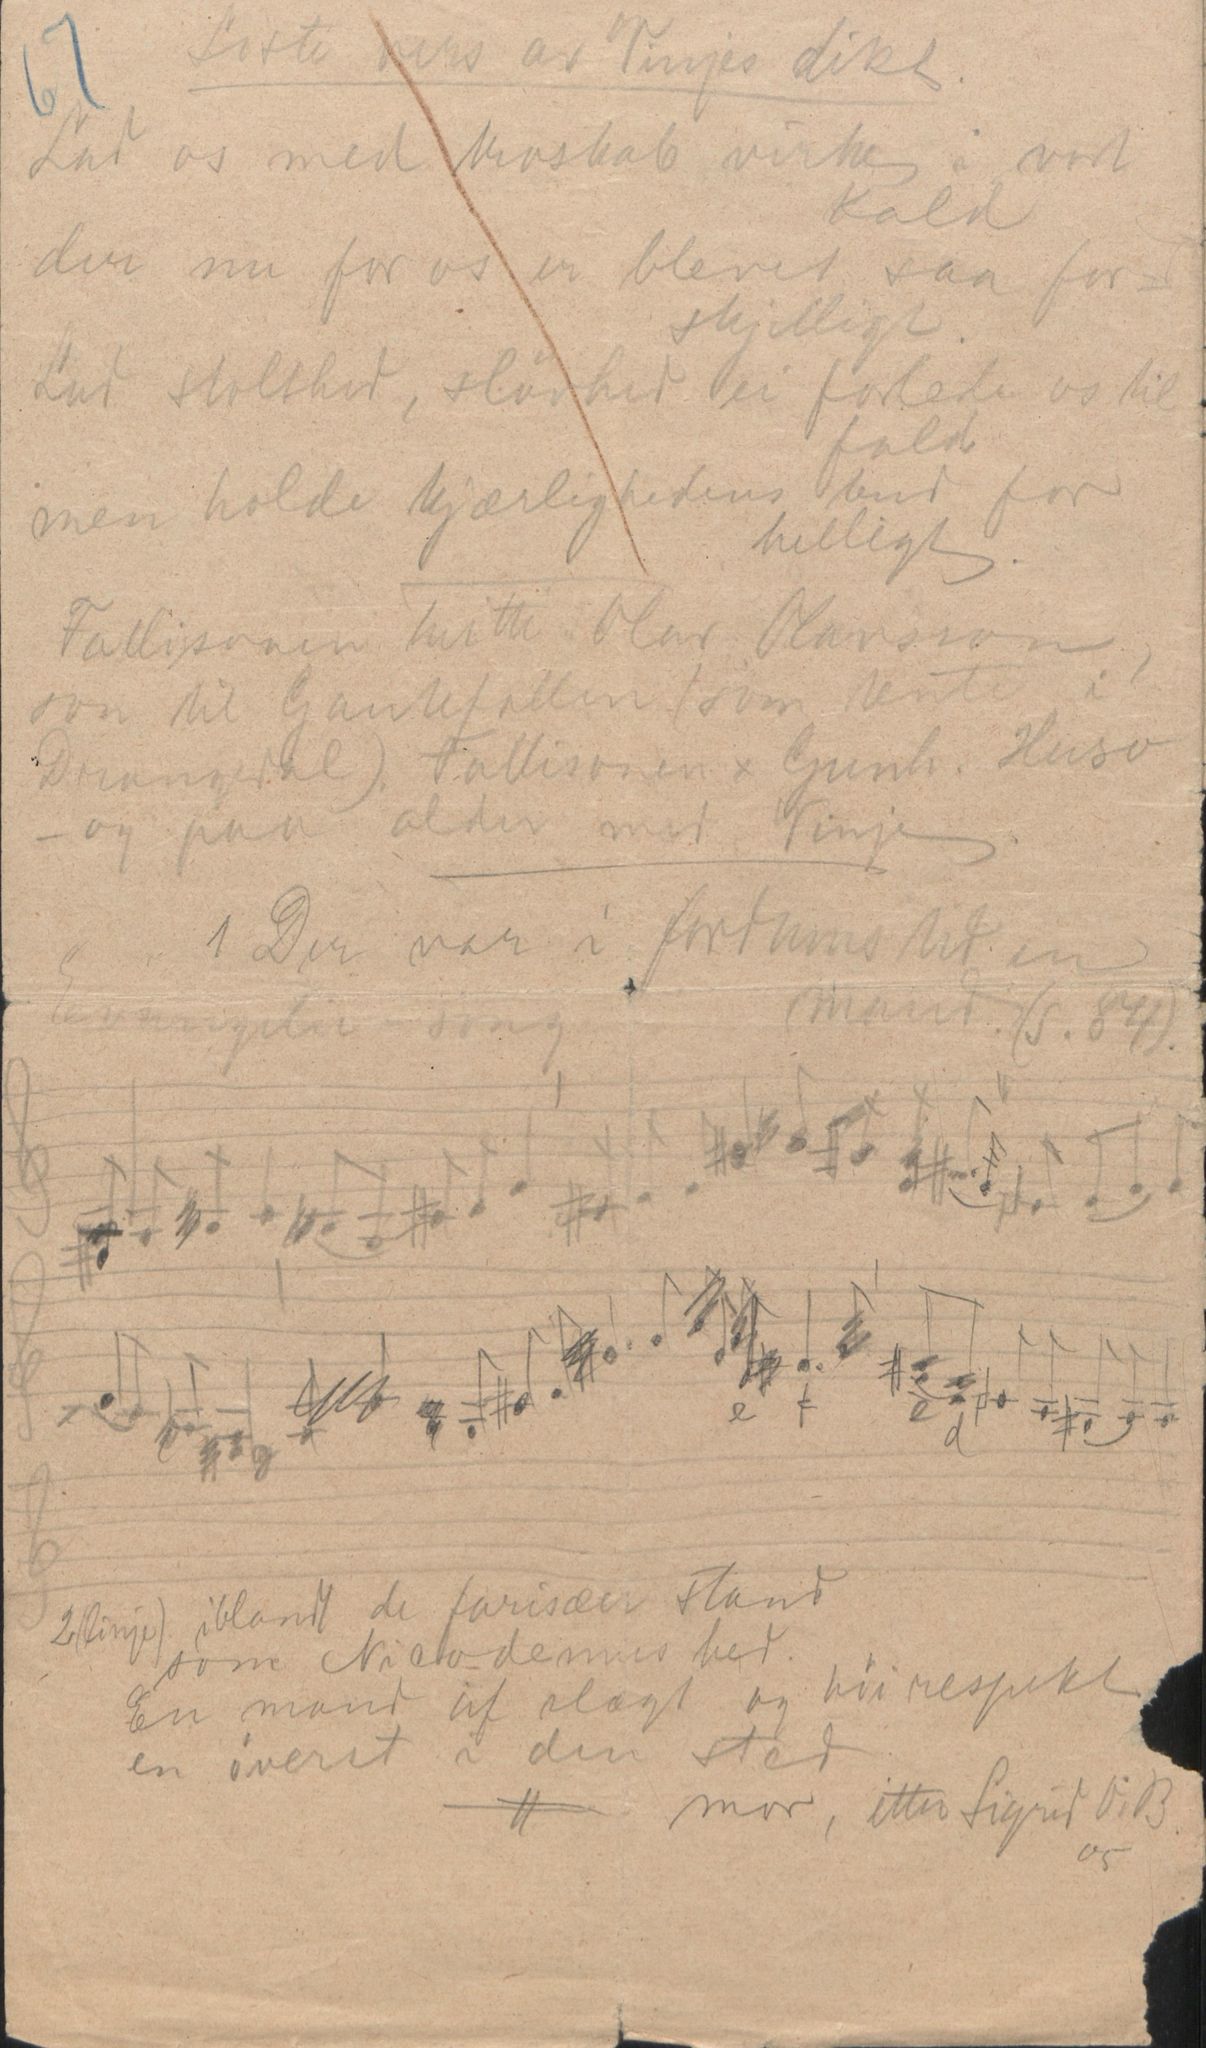 67
Siste vers av Vinjes dikt.
Lad os med troskab virke i vort
Kald
der nu for os er blevet saa for=
skjelligt.
Lad stolthed, slövhed ei forlede os til
fald
men holde kjærlighedens bud for
helligt.
Fattisonen heitte Olav Olavsson,
son til Gaukefatten (som tente i
Drangedal). Fattisonen x Gunh. Huso
- og paa alder med Vinje.
1 Der var i fordums tid en
Evangelie-song mand. (s. 84).
e f e d
2 (Vinje) iblandt de farisæer stand
som Nicodemus hed.
En mand af slægt og höi respekt
en överst i den sted
mor, etter Sigrid O. B.
05